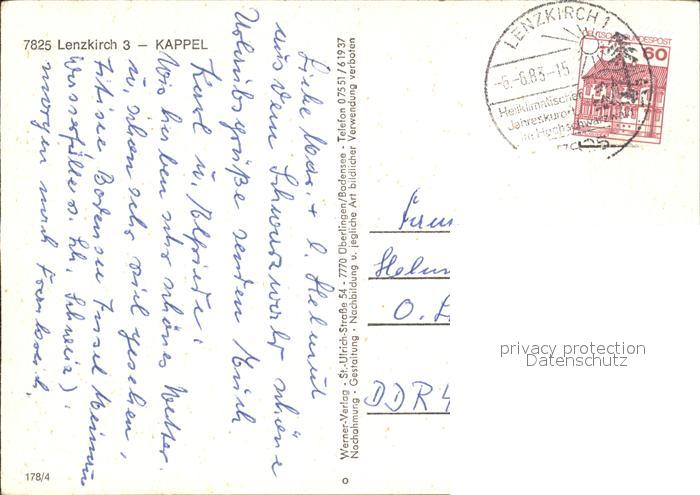 7825 Lenzkirch 3 — KAPPEL
Liebe Mar. + l. Helmut
aus dem Schwarzwald schöne
Urlaubsgrüße senden Euch
Karl u. Elfriede.
Wir haben sehr schönes Wetter
u. schon sehr viel gesehen,
Titisee Bodensee Insel Mainau
Wasserfälle (Schweiz).
morgen nach Frankreich.
178/4
Werner-Verlag - St.-Ulrich-Straße 54 - 7770 Überlingen/Bodensee - Telefon 07551/61937
Nachahmung - Gestaltung - Nachbildung u. jegliche Art bildlicher Verwendung verboten
LENZKIRCH 1
-6.-6.83-15
Heilklimatischer
Jahreskurort
im Hochschwarzwald
DEUTSCHE BUNDESPOST
60
Fam
Helm
O. L
DDR 4
privacy protection
Datenschutz